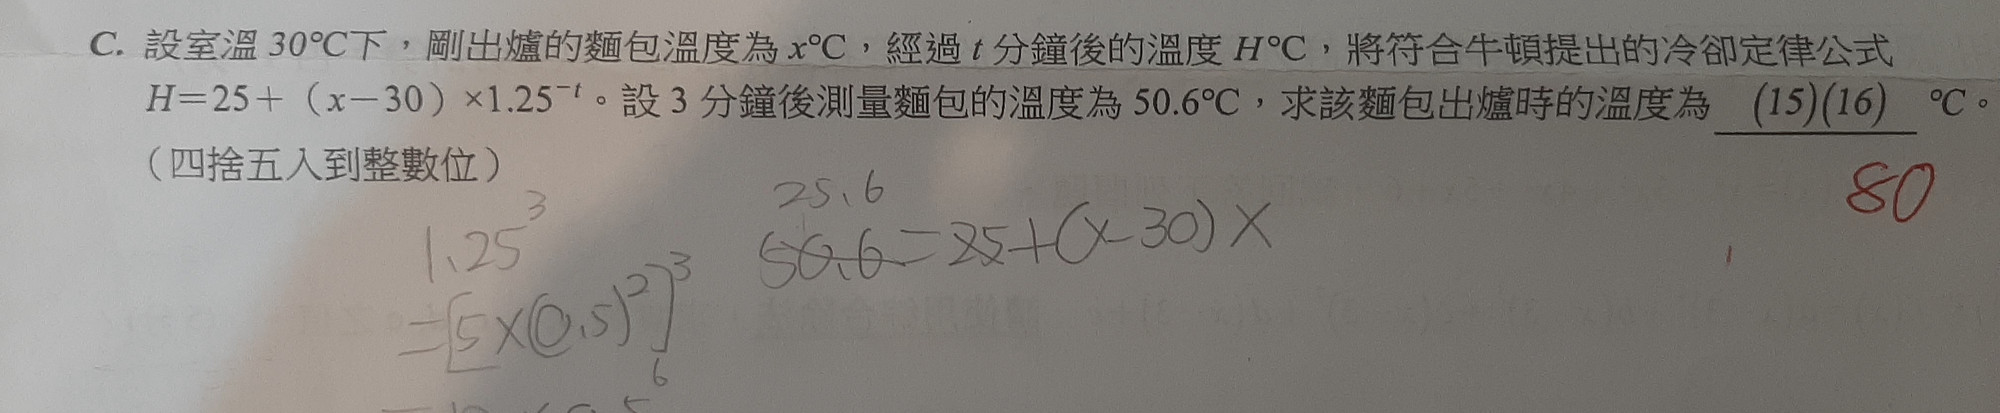 C. 設室溫 30℃下，剛出爐的麵包溫度為 x℃，經過 t 分鐘後的溫度 H℃，將符合牛頓提出的冷卻定律公式
H＝25＋（x－30）×1.25⁻ᵗ。設 3 分鐘後測量麵包的溫度為 50.6℃，求該麵包出爐時的溫度為 (15)(16) ℃。
（四捨五入到整數位）
80
25.6
50.6=25+(x-30)×
1.25³
=[5×(0.5)²]³
6